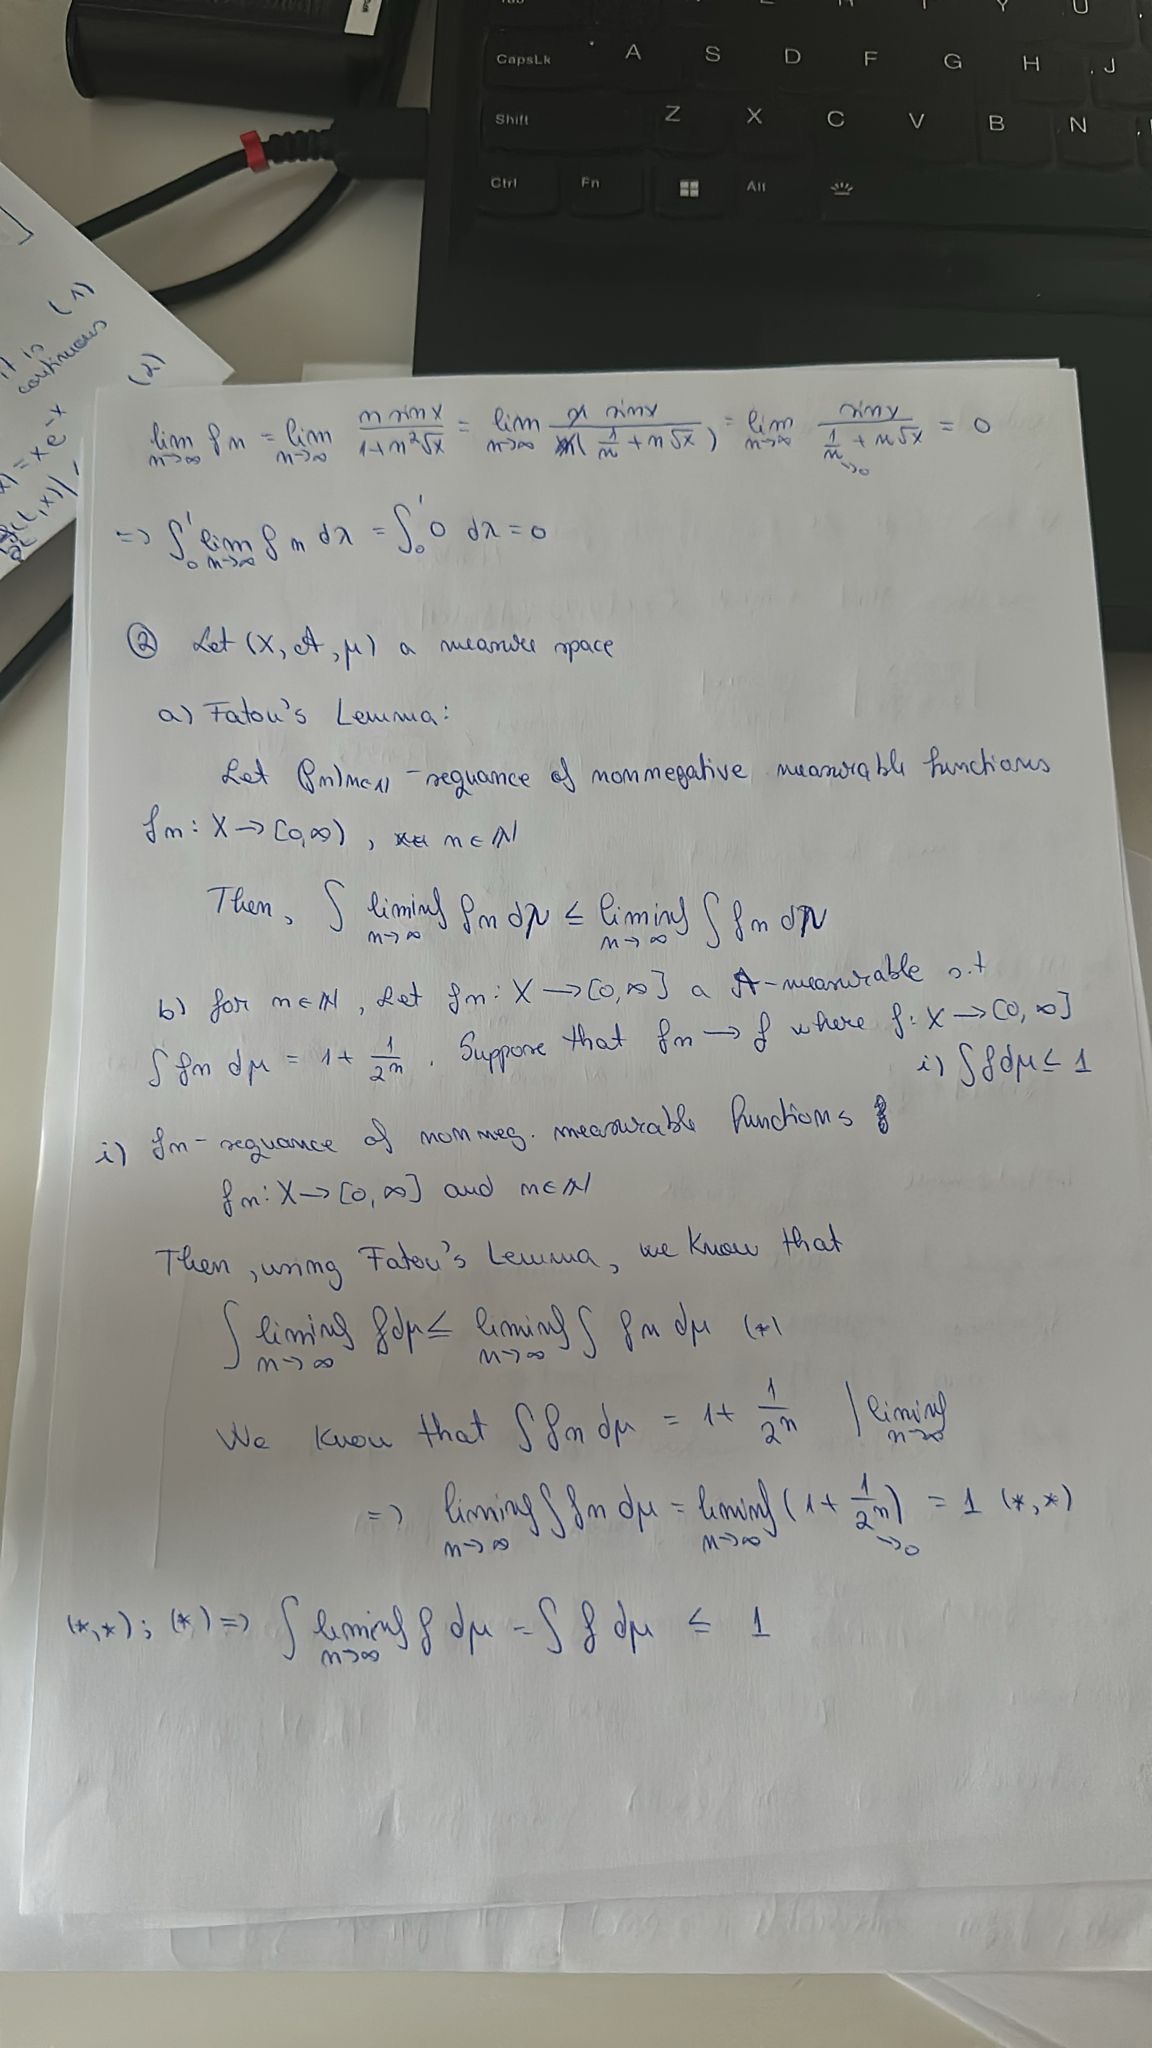 Tab E R T Y U
CapsLk A S D F G H J
Shift Z X C V B N
Ctrl Fn Alt
(1)
it is
continuous
(2)
x) = x e^-x
lim n→∞ fn = lim n→∞ n sin x / (1+n²√x) = lim n→∞ n sin x / (n(1/n + n√x)) = lim n→∞ sin x / (1/n + n√x) = 0
→0
=> ∫₀¹ lim n→∞ fn dλ = ∫₀¹ 0 dλ = 0
② Let (X, A, μ) a measure space
a) Fatou's Lemma:
Let (fn)n∈N - sequance of nonnegative measurable functions
fn: X → [0,∞), n∈N
Then, ∫ liminf n→∞ fn dμ ≤ liminf n→∞ ∫ fn dμ
b) for n∈N, Let fn: X → [0,∞] a A-measurable s.t
∫ fn dμ = 1 + 1/2^n. Suppose that fn → f where f: X → [0,∞]
i) ∫ f dμ ≤ 1
i) fn - sequance of nonneg. measurable functions
fn: X → [0,∞] and n∈N
Then, using Fatou's Lemma, we know that
∫ liminf n→∞ f dμ ≤ liminf n→∞ ∫ fn dμ (*)
We know that ∫ fn dμ = 1 + 1/2^n | liminf n→∞
=> liminf n→∞ ∫ fn dμ = liminf n→∞ (1 + 1/2^n) = 1 (*,*)
→0
(*,*); (*) => ∫ liminf n→∞ f dμ = ∫ f dμ ≤ 1